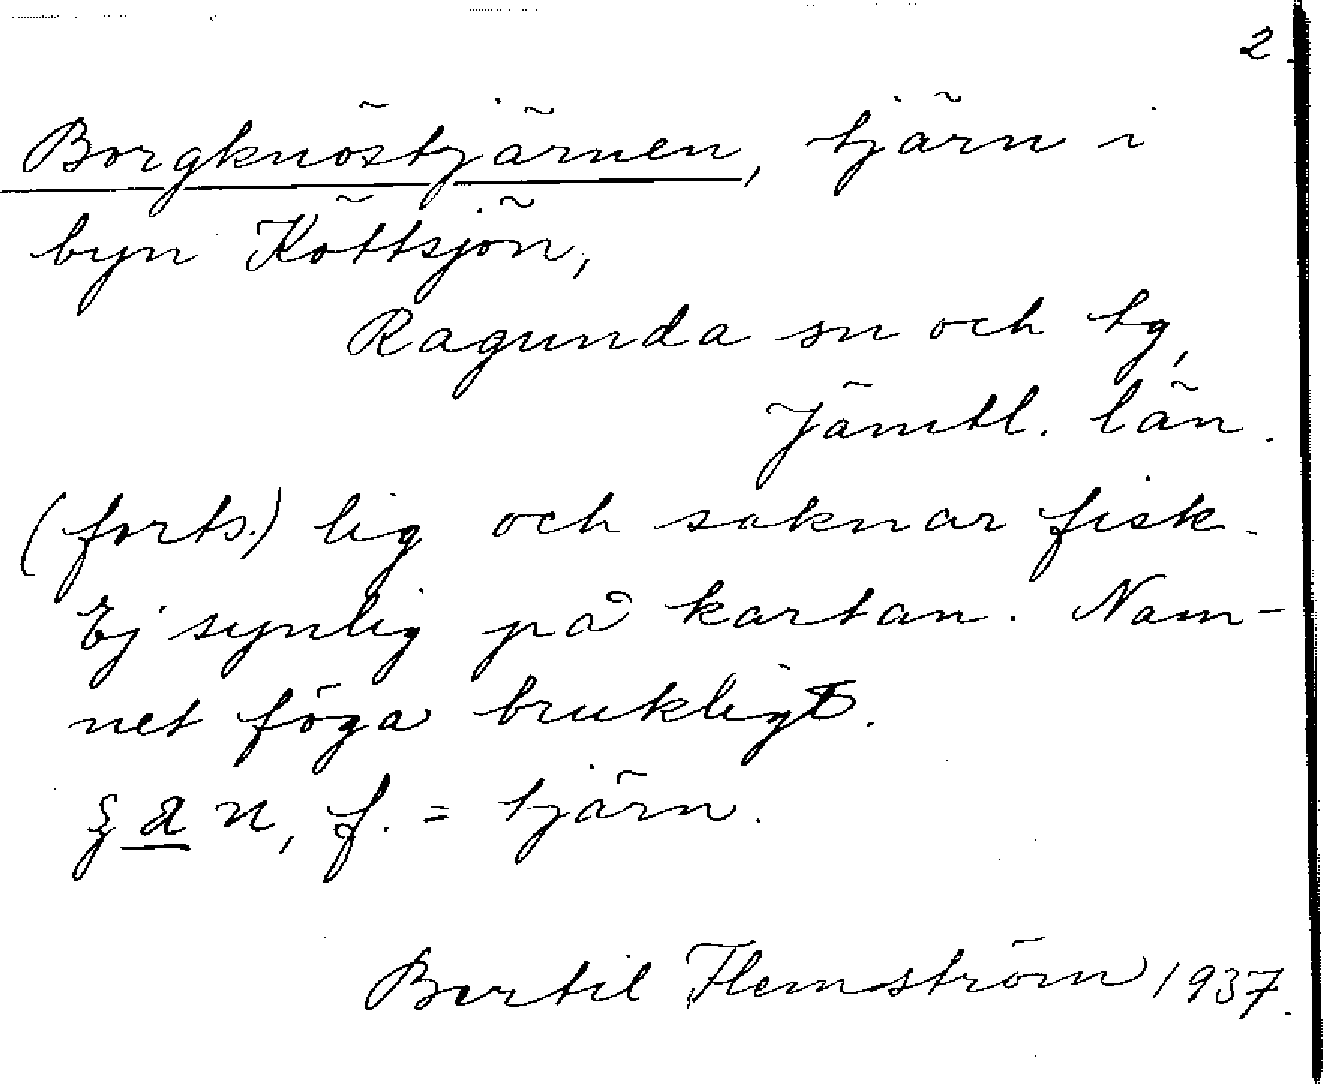 2
Borgknöstjärnen, tjärn i
byn Köttsjön,
Ragunda sn och tg,
Jämtl. län.
(forts.) lig och saknar fisk.
Ej synlig på kartan. Nam-
net föga brukligt.
n, f. = tjärn.
Bertil Flemström 1937.